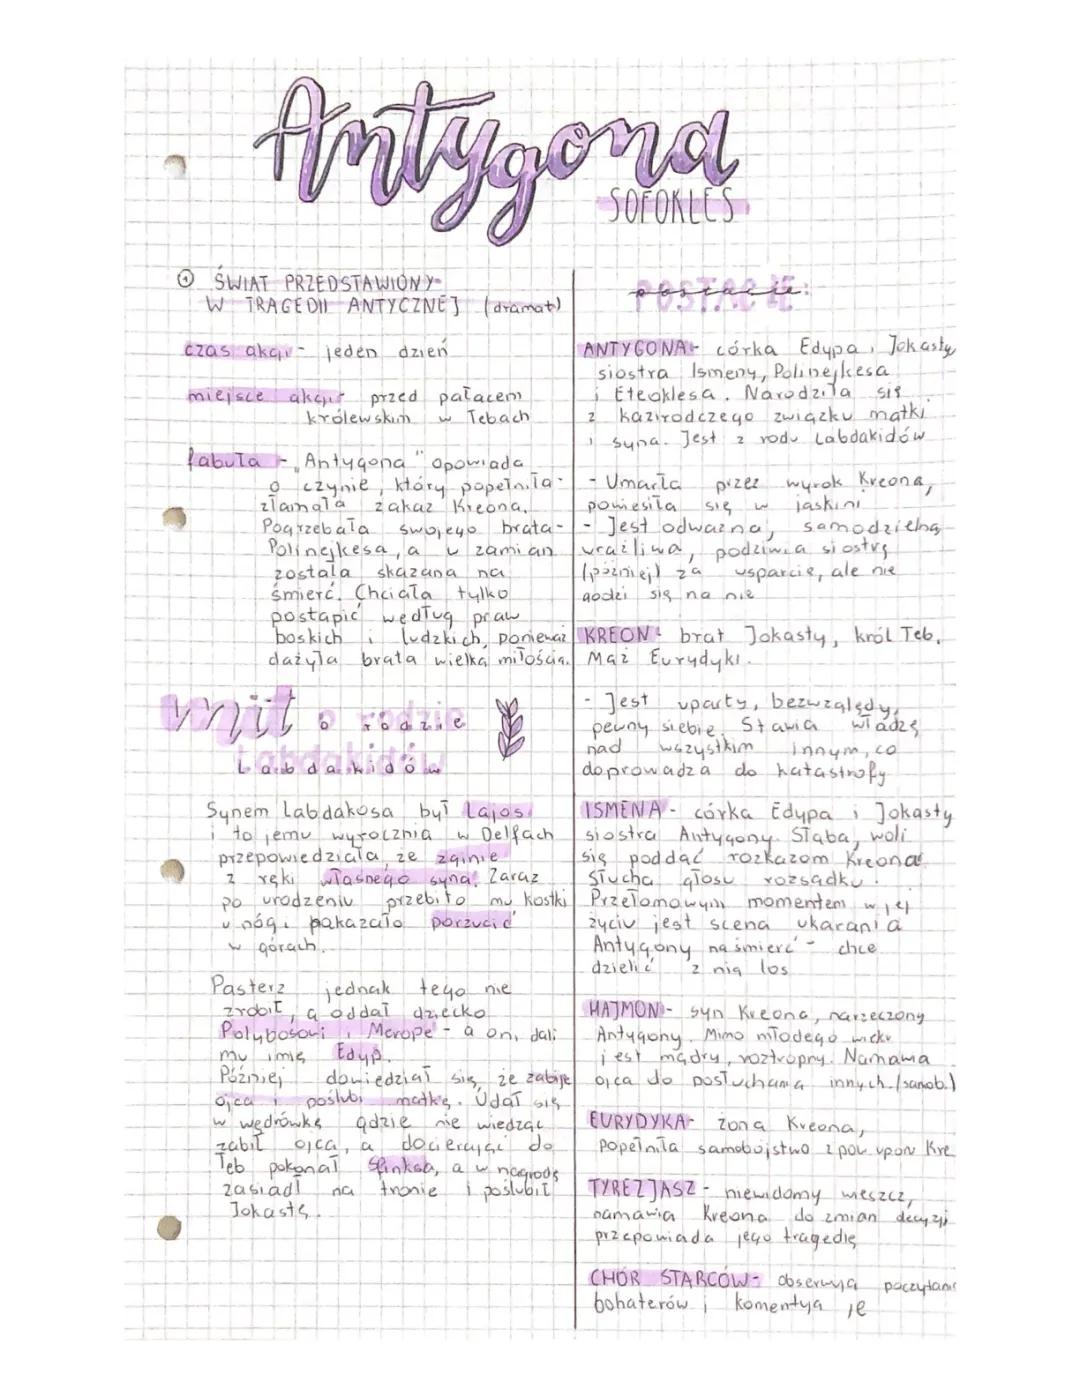 Antygona
SOFOKLES
① ŚWIAT PRZEDSTAWIONY
W TRAGEDII ANTYCZNEJ (dramat)
czas akcji - jeden dzień
miejsce akcji - przed pałacem
królewskim w Tebach
fabuła - „Antygona" opowiada
o czynie, który popełniła -
złamała zakaz Kreona.
Pogrzebała swojego brata -
Polinejkesa, a w zamian
została skazana na
śmierć. Chciała tylko
postąpić według praw
boskich i ludzkich, ponieważ
dażyła brata wielką miłością.
mit o rodzie
Labdakidów
Synem Labdakosa był Lajos
i to jemu wyrocznia w Delfach
przepowiedziała, że zginie
z ręki własnego syna. Zaraz
po urodzeniu przebito mu kostki
u nóg i pakazało porzucić
w górach.
Pasterz jednak tego nie
zrobił, a oddał dziecko
Polybosowi i Merope - a oni dali
mu imię Edyp.
Później dowiedział się, że zabije
ojca i poślubi matkę. Udał się
w wędrówkę gdzie nie wiedząc
zabił ojca, a docierając do
Teb pokonał Sfinksa, a w nagrodę
zasiadł na tronie i poślubił
Jokastę.
postacie:
ANTYGONA - córka Edypa i Jokasty,
siostra Ismeny, Polinejkesa
i Eteoklesa. Narodziła się
z kazirodczego związku matki
i syna. Jest z rodu Labdakidów
- Umarła przez wyrok Kreona,
powiesiła się w jaskini
- Jest odważna, samodzielna
wrażliwa, podziwia siostrę
(później) za wsparcie, ale nie
godzi się na nie
KREON - brat Jokasty, król Teb.
Mąż Eurydyki.
- Jest uparty, bezwzględy,
pewny siebie. Stawia władzę
nad wszystkim innym, co
doprowadza do katastrofy
ISMENA - córka Edypa i Jokasty
siostra Antygony. Słaba, woli
się poddać rozkazom Kreona.
Słucha głosu rozsądku.
Przełomowym momentem w jej
życiu jest scena ukarania
Antygony na śmierć - chce
dzielić z nią los
HAJMON - syn Kreona, narzeczony
Antygony. Mimo młodego wieku
jest mądry, roztropny. Namawia
ojca do posłuchania innych. (samob.)
EURYDYKA - żona Kreona,
popełniła samobójstwo z pow. upon Kre
TYREZJASZ - niewidomy wieszcz,
namawia Kreona do zmian decyzji
przepowiada jego tragedię
CHÓR STARCÓW - obserwują poczynani
bohaterów i komentują je